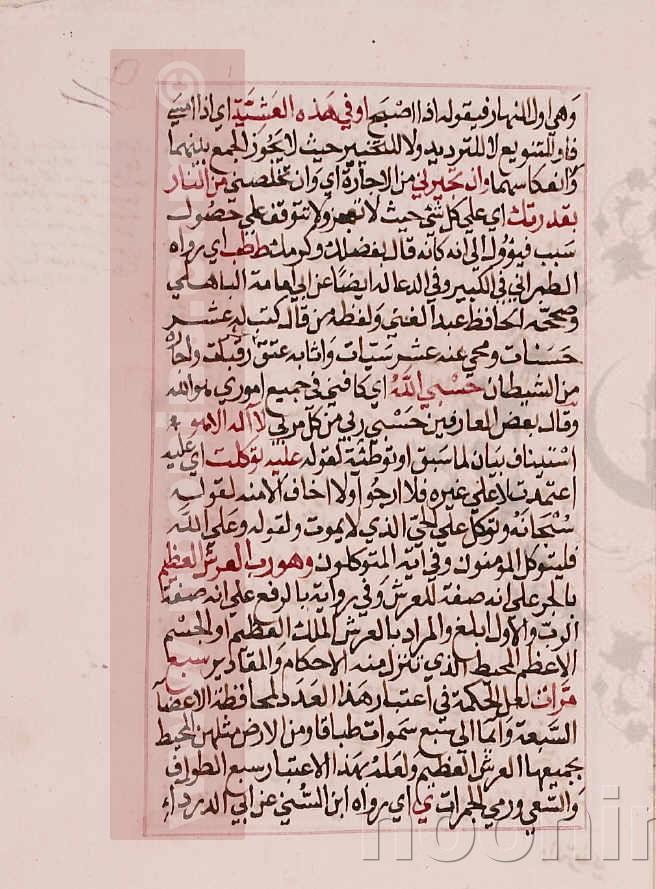 وهي اول النهار فيقوله اذا اصبح او في هذه العشية اي اذا امسى
فاو للتنويع لا للترديد ولا للتخيير حيث لا يجوز الجمع بينهما
وانعكاسهما وان تجيرني من الاجارة اي وان تخلصني من النار
بقدرتك اي على كل شئ حيث لا تعجز ولا تتوقف على حصول
سبب فيؤول الى انه كانه قال بفضلك وكرمك ط طب اي رواه
الطبراني في الكبير وفي الدعا له ايضا عن ابي امامة الباهلي
وصححه الحافظ عبد الغني ولفظه من قال كتب له عشر
حسنات ومحي عنه عشر سيآت واثابه عتق رقبات واجاره
من الشيطان حسبي الله اي كافيني في جميع اموري هو الله
وقال بعض العارفين حسبي ربي من كل مربي لا اله الا هو
استيناف بيان لما سبق او توطئة لقوله عليه توكلت اي عليه
اعتمدت لا على غيره فلا ارجو ولا اخاف الا منه لقوله
سبحانه وتوكل على الحي الذي لا يموت ولقوله وعلى الله
فليتوكل المؤمنون وفي آية المتوكلون وهو رب العرش العظيم
بالجر على انه صفة للعرش وفي رواية بالرفع على انه صفة
الرب والاول ابلغ والمراد بالعرش الملك العظيم او الجسم
الاعظم المحيط الذي تتنزل منه الاحكام والمقادير سبع
مرات لعل الحكمة في اعتبار هذا العدد لمحافظة الاعضآ
السبعة وايما الى سبع سموات طباقا ومن الارض مثلهن المحيط
بجميعها العرش العظيم ولعله بهذا الاعتبار سبع الطواف
والسعي ورمي الجمرات ي اي رواه ابن السني عن ابي الدرداء
noorin